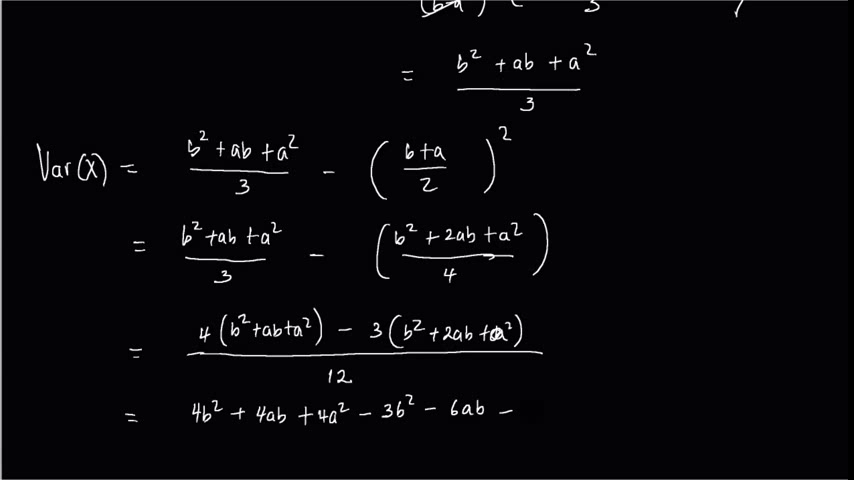 (b-a) ( 3
= b² + ab + a² / 3
Var(X) = b² + ab + a² / 3 - ( b+a / 2 )²
= b² + ab + a² / 3 - ( b² + 2ab + a² / 4 )
= 4(b² + ab + a²) - 3(b² + 2ab + a²) / 12
= 4b² + 4ab + 4a² - 3b² - 6ab -